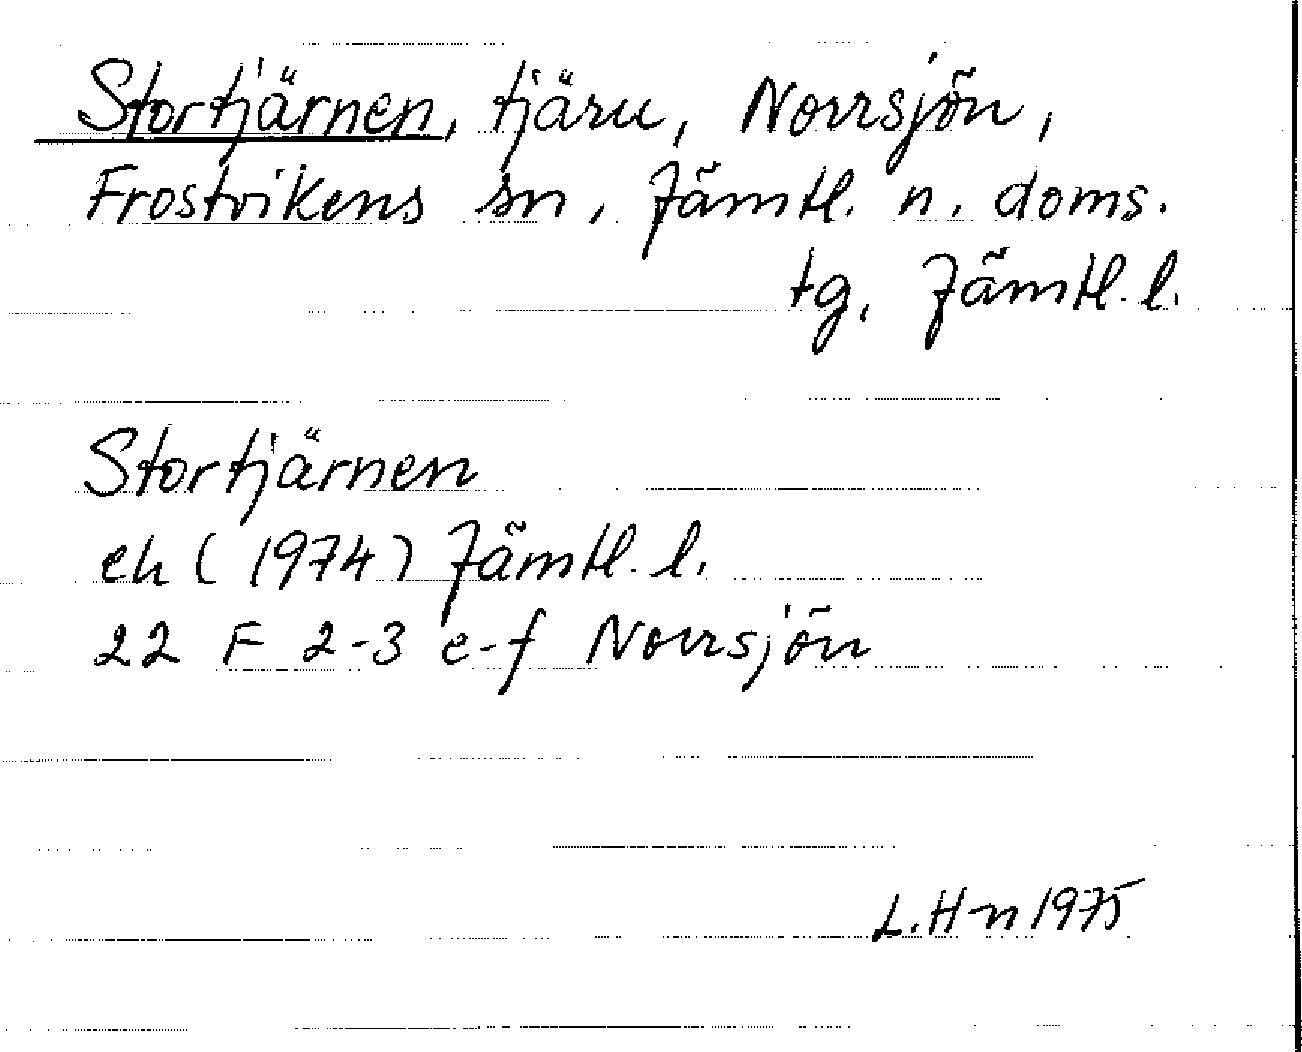 Stortjärnen, tjärn, Norrsjön,
Frostvikens sn, Jämtl. n. doms.
tg, Jämtl. l.
Stortjärnen
ek (1974) Jämtl. l.
22 F 2-3 e-f Norrsjön
L. H-n 1975